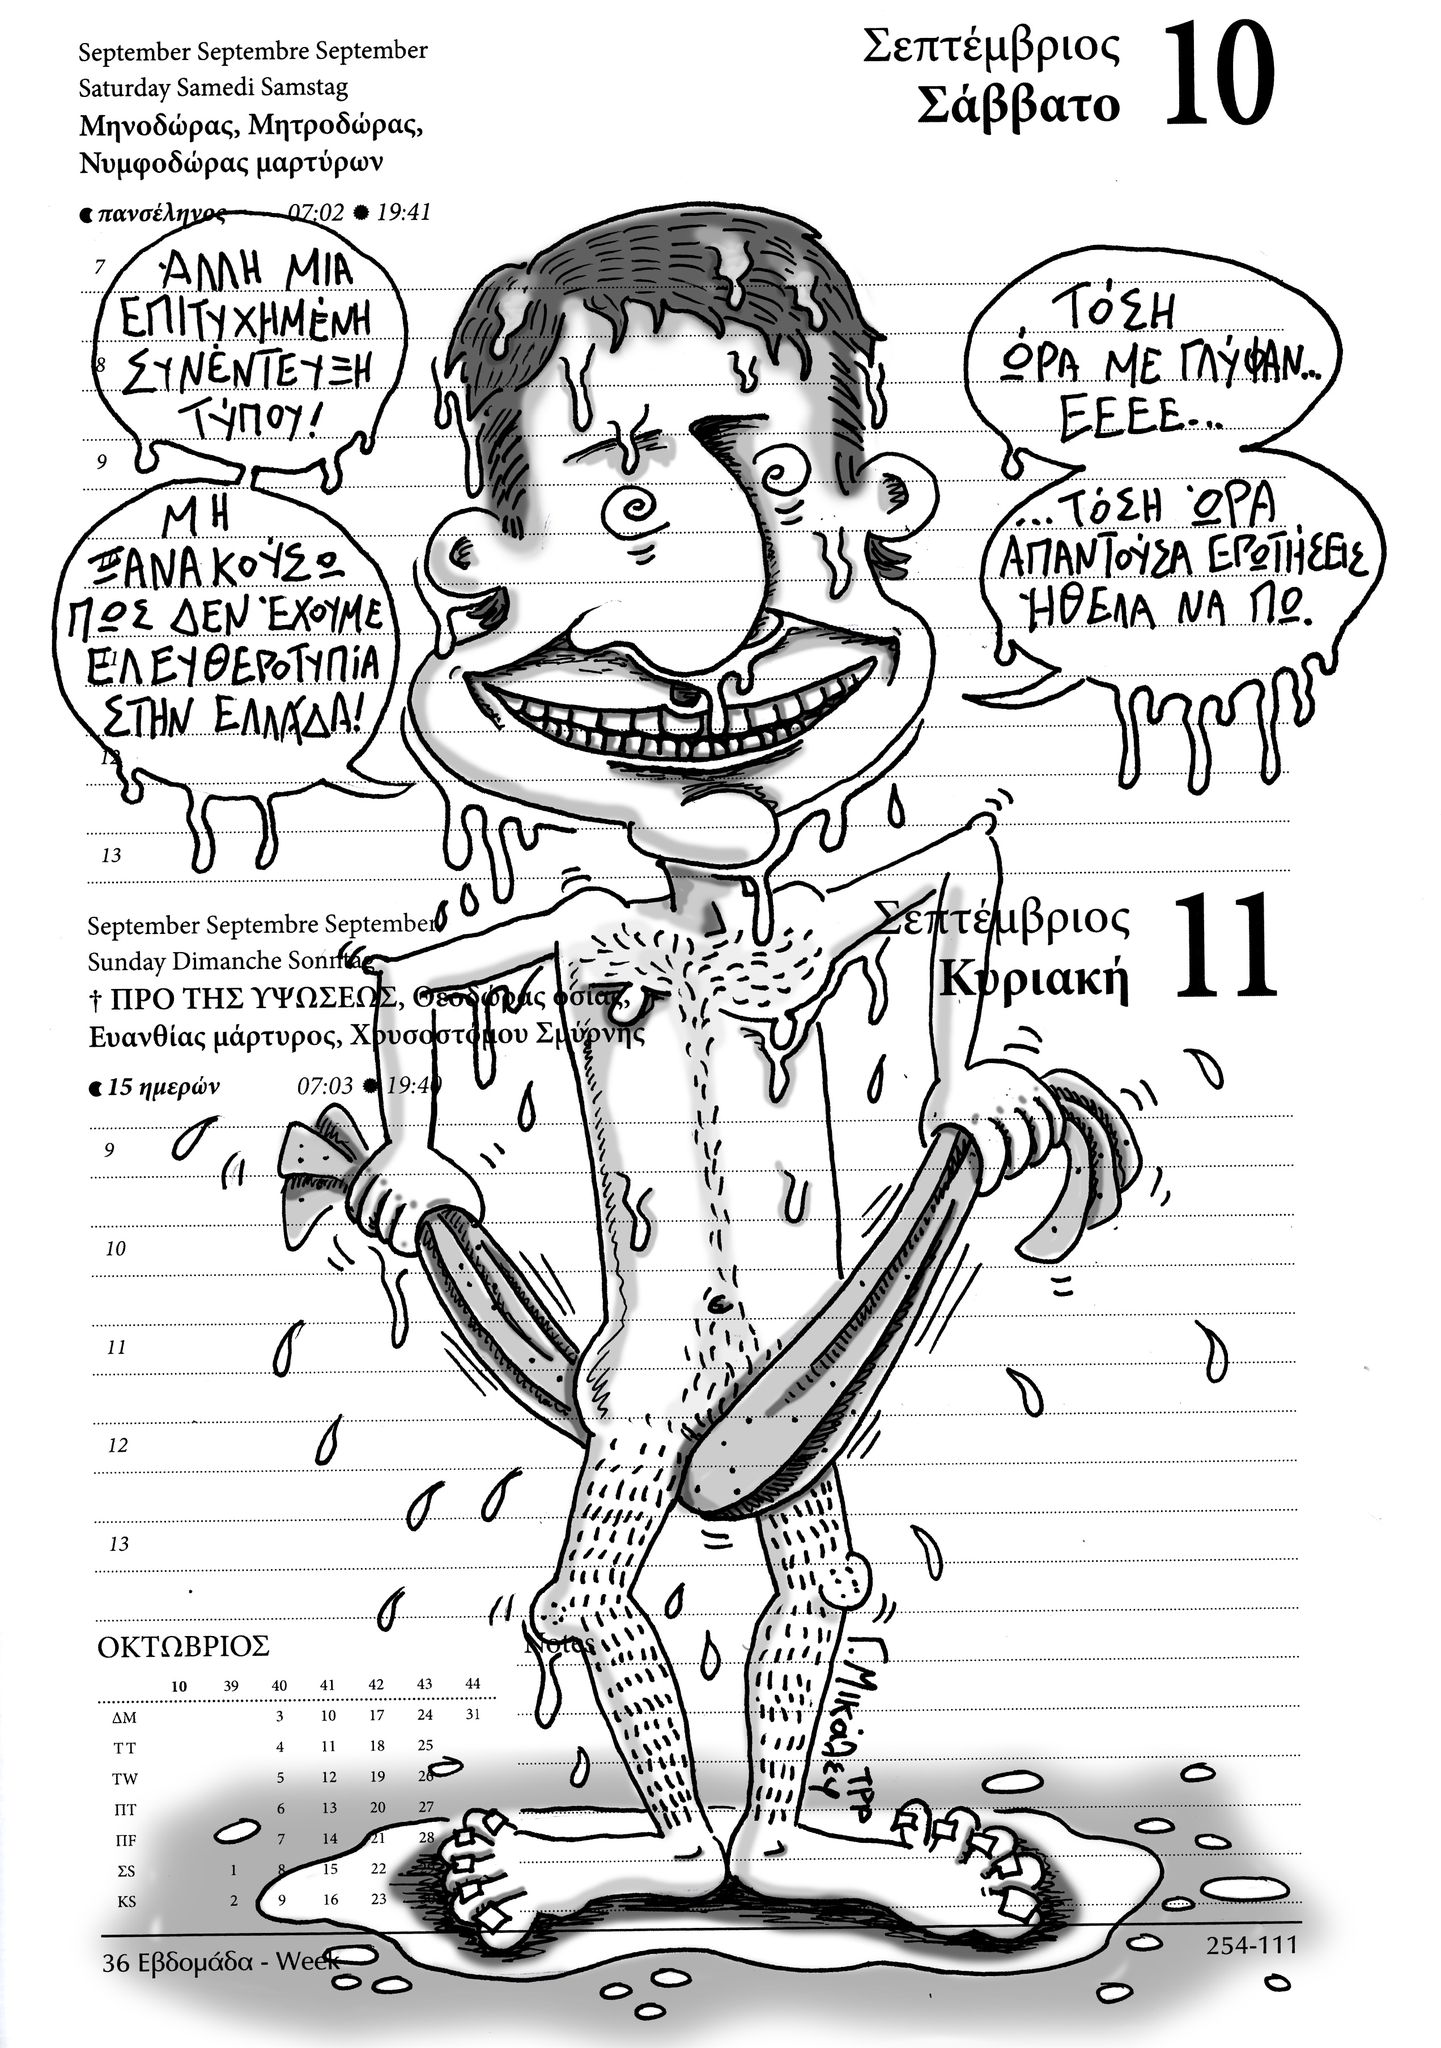 September Septembre September
Saturday Samedi Samstag
Μηνοδώρας, Μητροδώρας,
Νυμφοδώρας μαρτύρων
πανσέληνος 07:02 19:41
Σεπτέμβριος
Σάββατο
10
7
8
9
12
13
ΆΛΛΗ ΜΙΑ
ΕΠΙΤΥΧΗΜΈΝΗ
ΣΥΝΈΝΤΕΥΞΗ
ΤΎΠΟΥ!
ΜΗ
ΞΑΝΑΚΟΎΣΩ
ΠΩΣ ΔΕΝ ΈΧΟΥΜΕ
ΕΛΕΥΘΕΡΟΤΥΠΊΑ
ΣΤΗΝ ΕΛΛΆΔΑ!
ΤΌΣΗ
ΏΡΑ ΜΕ ΓΛΎΦΑΝ...
ΕΕΕΕ...
...ΤΌΣΗ ΏΡΑ
ΑΠΑΝΤΟΎΣΑ ΕΡΩΤΉΣΕΙΣ
ΉΘΕΛΑ ΝΑ ΠΩ.
September Septembre September
Sunday Dimanche Sonntag
† ΠΡΟ ΤΗΣ ΥΨΩΣΕΩΣ, Θεοδώρας οσίας,
Ευανθίας μάρτυρος, Χρυσοστόμου Σμύρνης
15 ημερών 07:03 19:40
Σεπτέμβριος
Κυριακή
11
9
10
11
12
13
ΟΚΤΩΒΡΙΟΣ
10 39 40 41 42 43 44
ΔM 3 10 17 24 31
ΤT 4 11 18 25
ΤW 5 12 19 26
ΠT 6 13 20 27
ΠF 7 14 21 28
ΣS 1 8 15 22
ΚS 2 9 16 23
Notes
Γ. ΜΙΚάΛΕΥ
ΤΡΡ
36 Εβδομάδα - Week
254-111